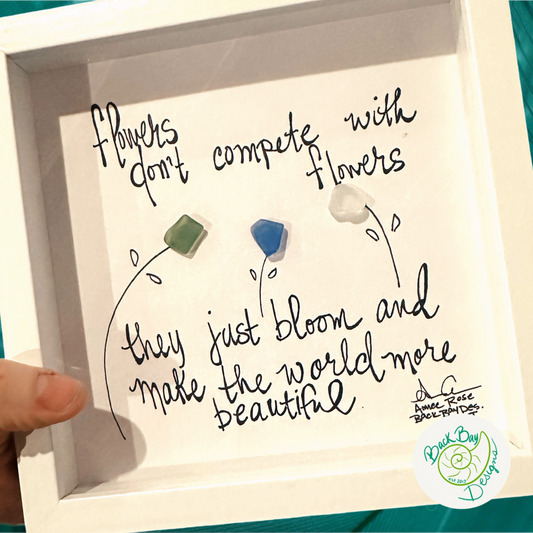 flowers
don't compete with
flowers
they just bloom and
make the world more
beautiful.
Aimee Rose
BACK BAY DES.
Back Bay
Designs
EST 2017